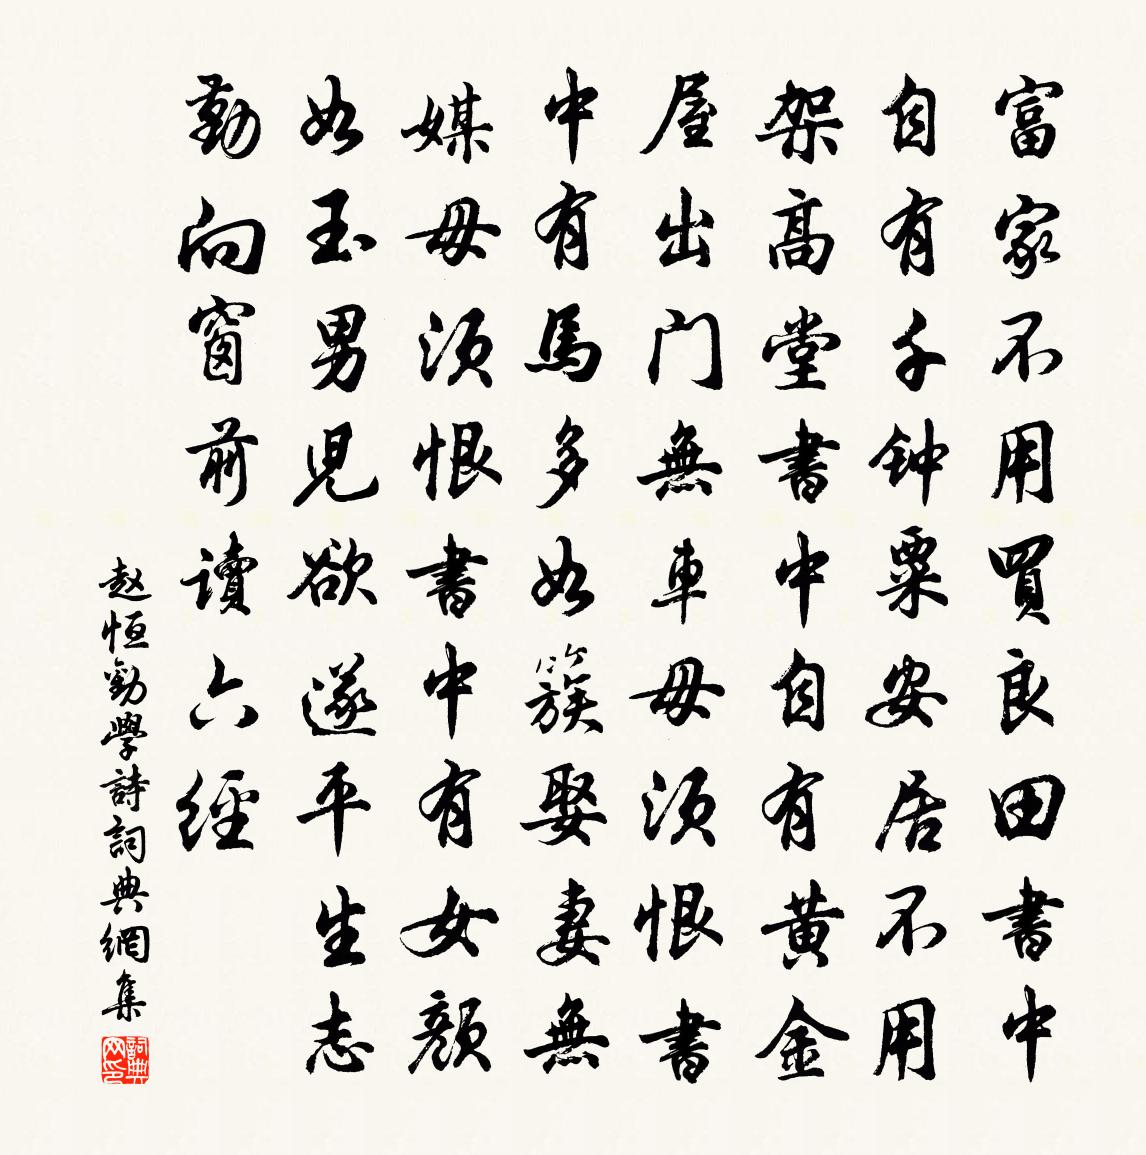 富家不用買良田書中
自有千钟粟安居不用
架高堂書中自有黄金
屋出门無車毋须恨書
中有馬多如簇娶妻無
媒毋须恨書中有女颜
如玉男児欲遂平生志
勤向窗前讀六经
赵恒勸學詩詞典網集
詞典网印